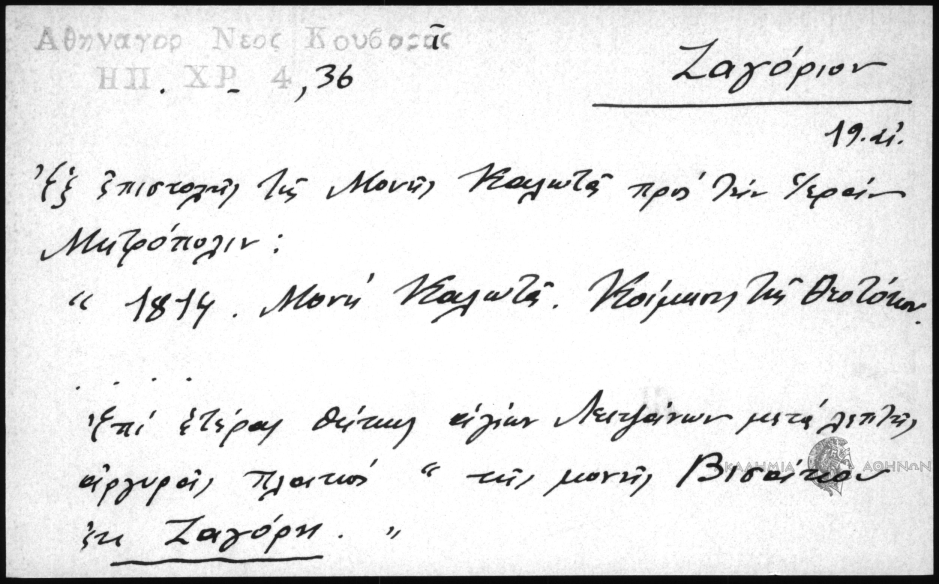 Αθηναγορ Νεος Κουβαρᾶς
ΗΠ. ΧΡ 4, 36
Ζαγόριον
19. αἰ.
Ἐξ ἐπιστολῆς τῆς Μονῆς Καλωτᾶ πρὸς τὴν Ἱερὰν
Μητρόπολιν :
“ 1814. Μονὴ Καλωτᾶ. Κοίμησις τῆς Θεοτόκου.
. . . .
Ἐπὶ ἑτέρας θήκης ἁγίων Λειψάνων μετὰ λεπτῆς
ἀργυρᾶς πλακὸς “ τῆς μονῆς Βισαίκου
ἐκ Ζαγόρη. ”
ΑΚΑΔΗΜΙΑ ΑΘΗΝΩΝ